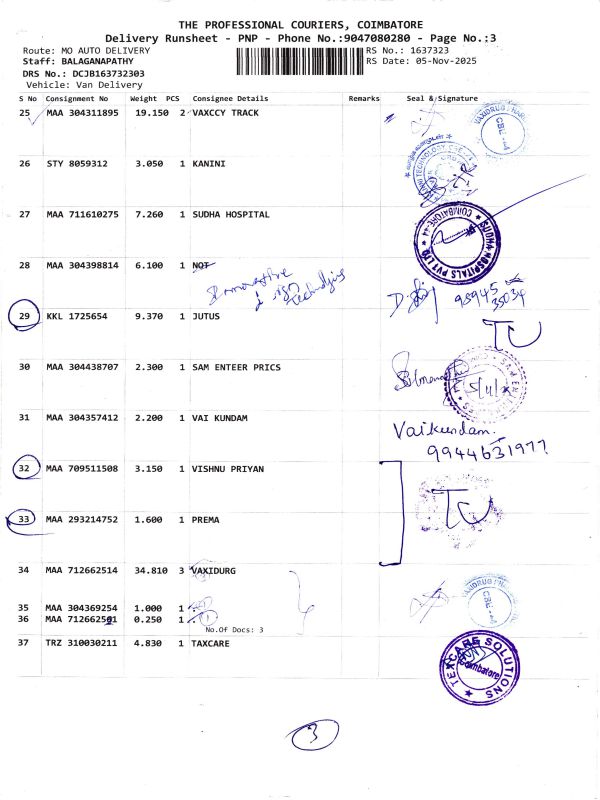 THE PROFESSIONAL COURIERS, COIMBATORE
Delivery Runsheet - PNP - Phone No.:9047080280 - Page No.:3
Route: MO AUTO DELIVERY
RS No.: 1637323
Staff: BALAGANAPATHY
RS Date: 05-Nov-2025
DRS No.: DCJB163732303
Vehicle: Van Delivery
S No Consignment No Weight PCS Consignee Details Remarks Seal & Signature
25 MAA 304311895 19.150 2 VAXCCY TRACK
26 STY 8059312 3.050 1 KANINI
27 MAA 711610275 7.260 1 SUDHA HOSPITAL
COIMBATORE-44
HOSPITALS PVT LTD
28 MAA 304398814 6.100 1 NOT
98945
35034
29 KKL 1725654 9.370 1 JUTUS
TU
30 MAA 304438707 2.300 1 SAM ENTEER PRICS
5/11/
31 MAA 304357412 2.200 1 VAI KUNDAM
Vaikundam.
9944631977
32 MAA 709511508 3.150 1 VISHNU PRIYAN
TU
33 MAA 293214752 1.600 1 PREMA
34 MAA 712662514 34.810 3 VAXIDURG
VAXIDRUG
35 MAA 304369254 1.000 1
36 MAA 712662501 0.250 1
No.Of Docs: 3
37 TRZ 310030211 4.830 1 TAXCARE
TEXCARE SOLUTIONS
Coimbatore
3